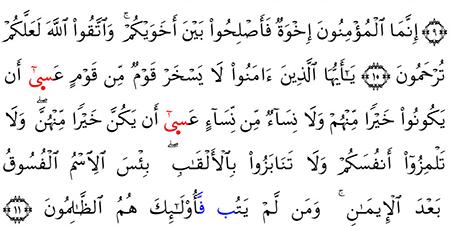 ﴿٩﴾ إِنَّمَا ٱلْمُؤْمِنُونَ إِخْوَةٌ فَأَصْلِحُوا۟ بَيْنَ أَخَوَيْكُمْ ۚ وَٱتَّقُوا۟ ٱللَّهَ لَعَلَّكُمْ
تُرْحَمُونَ ﴿١٠﴾ يَـٰٓأَيُّهَا ٱلَّذِينَ ءَامَنُوا۟ لَا يَسْخَرْ قَوْمٌ مِّن قَوْمٍ عَسَىٰٓ أَن
يَكُونُوا۟ خَيْرًا مِّنْهُمْ وَلَا نِسَآءٌ مِّن نِّسَآءٍ عَسَىٰٓ أَن يَكُنَّ خَيْرًا مِّنْهُنَّ ۖ وَلَا
تَلْمِزُوٓا۟ أَنفُسَكُمْ وَلَا تَنَابَزُوا۟ بِٱلْأَلْقَـٰبِ ۖ بِئْسَ ٱلِٱسْمُ ٱلْفُسُوقُ
بَعْدَ ٱلْإِيمَـٰنِ ۚ وَمَن لَّمْ يَتُب فَّأُو۟لَـٰٓئِكَ هُمُ ٱلظَّـٰلِمُونَ ﴿١١﴾